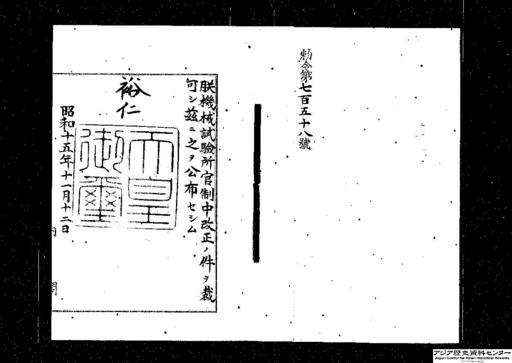 勅令第七百五十八號
朕機械試驗所官制中改正ノ件ヲ裁
可シ玆ニ之ヲ公布セシム
裕仁
天皇
御璽
昭和十五年十一月十二日
内閣
アジア歴史資料センター
Japan Center for Asian Historical Records